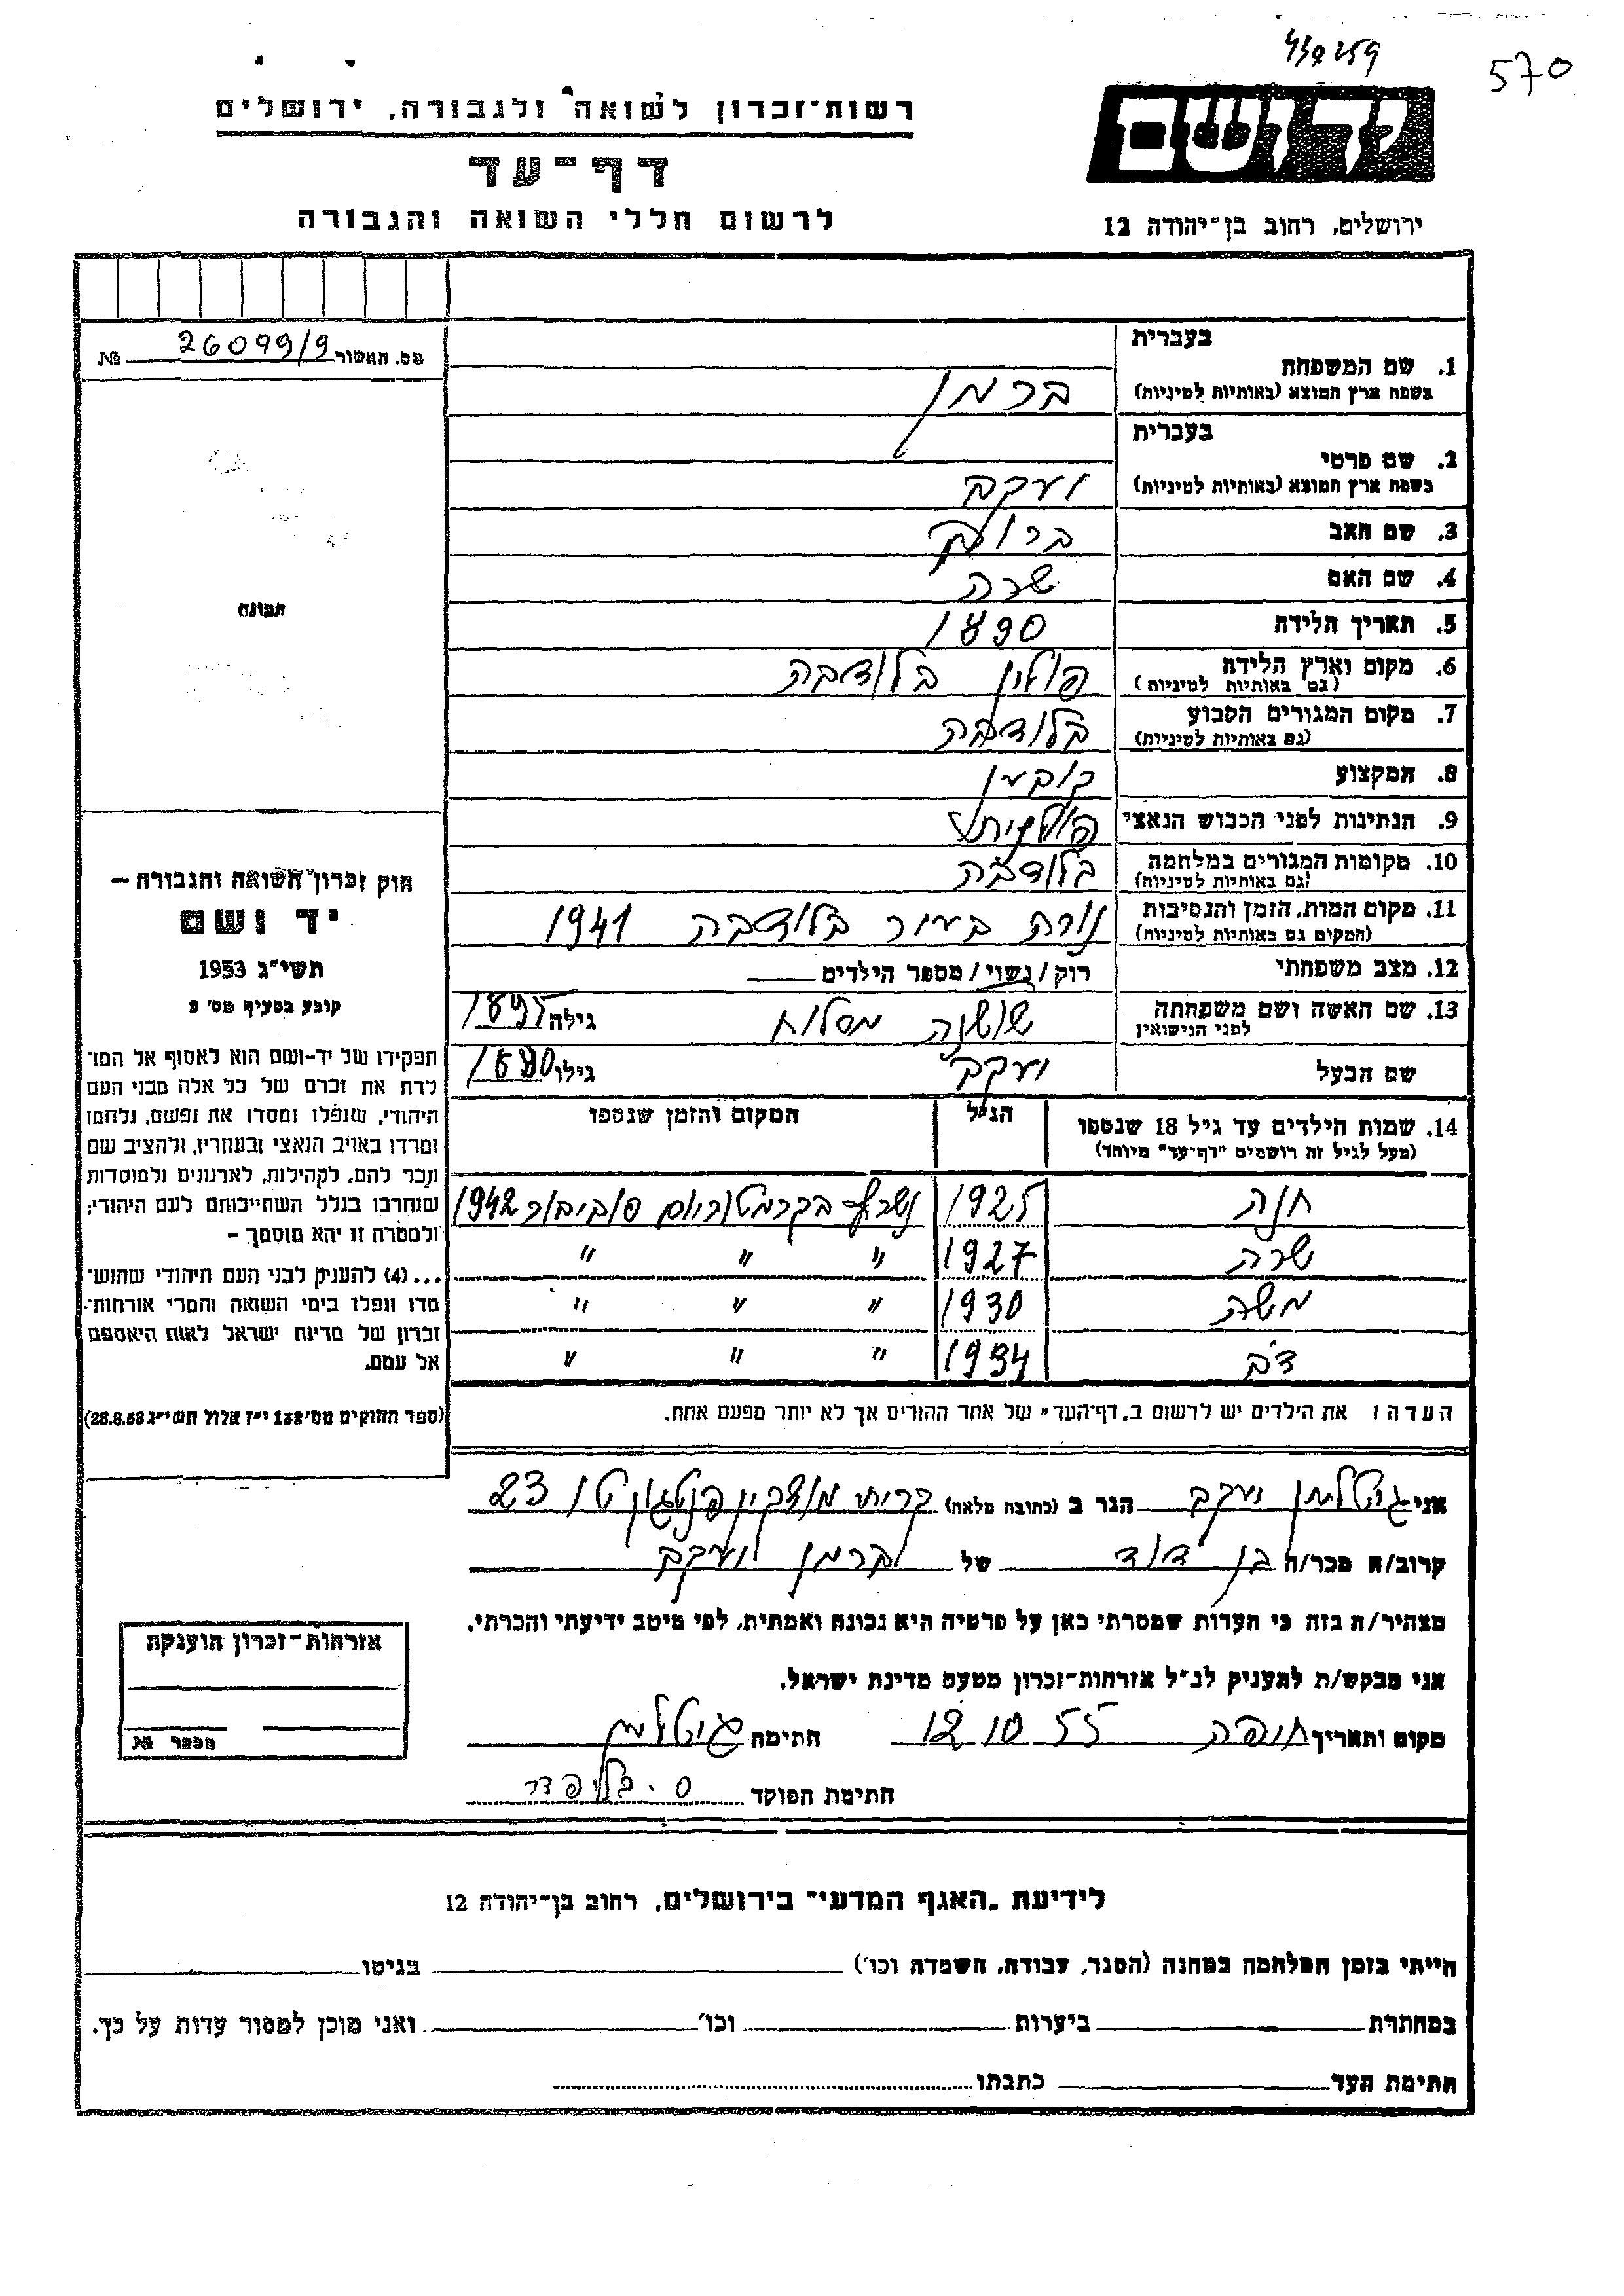 439259
570
רשות-זכרון לשואה ולגבורה, ירושלים
דף-עד
לרשום חללי השואה והגבורה
יד ושם
ירושלים, רחוב בן-יהודה 12
מס. האשור 26099/9 №
בעברית
1. שם המשפחה
בשפת ארץ המוצא (באותיות לטיניות) ברמן
בעברית
2. שם פרטי
בשפת ארץ המוצא (באותיות לטיניות) יעקב
3. שם האב ברוך
4. שם האם שרה
5. תאריך הלידה 1890
6. מקום וארץ הלידה פולין בלודבה
(גם באותיות לטיניות)
7. מקום המגורים הקבוע בלודבה
(גם באותיות לטיניות)
8. המקצוע כובען
9. הנתינות לפני הכבוש הנאצי פולנית
10. מקומות המגורים במלחמה בלודבה
(גם באותיות לטיניות)
11. מקום המות, הזמן והנסיבות נורה בעיר בלודבה 1941
(המקום גם באותיות לטיניות)
12. מצב משפחתי רוק/נשוי/מספר הילדים
13. שם האשה ושם משפחתה שושנה גילה 1895
לפני הנישואין
שם הבעל יעקב גילו 1890
14. שמות הילדים עד גיל 18 שנספו הגיל המקום והזמן שנספו
(מעל לגיל זה רושמים "דף-עד" מיוחד)
חנה 1925 נשרף בקרמטוריום סוביבור 1942
שרה 1927 " " "
משה 1930 " " "
דב 1934 " " "
הערה: את הילדים יש לרשום ב"דף-העד" של אחד ההורים אך לא יותר מפעם אחת.
תמונה
חוק זכרון השואה והגבורה —
יד ושם
תשי"ג 1953
קובע בסעיף מס' 2
תפקידו של יד-ושם הוא לאסוף אל המו־
לדת את זכרם של כל אלה מבני העם
היהודי, שנפלו ומסרו את נפשם, נלחמו
ומרדו באויב הנאצי ובעוזריו, ולהציב שם
וזכר להם, לקהילות, לארגונים ולמוסדות
שנחרבו בגלל השתייכותם לעם היהודי;
ולמטרה זו יהא מוסמך —
...(4) להעניק לבני העם היהודי שהוש־
מדו ונפלו בימי השואה והמרי אזרחות־
זכרון של מדינת ישראל לאות היאספם
אל עמם.
(ספר החוקים מס' 132 י"ז אלול תשי"ג 28.8.53)
אני גוטליב יעקב הגר ב (כתובה מלאה) קרית מוצקין 23
קרוב/ה מכר/ה בן דוד של ברמן יעקב
מצהיר/ה בזה כי העדות שמסרתי כאן על פרטיה היא נכונה ואמתית, לפי מיטב ידיעתי והכרתי.
אני מבקש/ת להעניק לנ"ל אזרחות-זכרון מטעם מדינת ישראל.
מקום ותאריך חיפה 12 10 55 חתימה
חתימת הפוקד
אזרחות-זכרון הוענקה
מספר №
לידיעת "האגף המדעי" בירושלים, רחוב בן-יהודה 12
הייתי בזמן המלחמה במחנה (הסגר, עבודה, השמדה וכו') בגיטו
במחתרת ביערות וכו' ואני מוכן למסור עדות על כך.
חתימת העד כתבתו